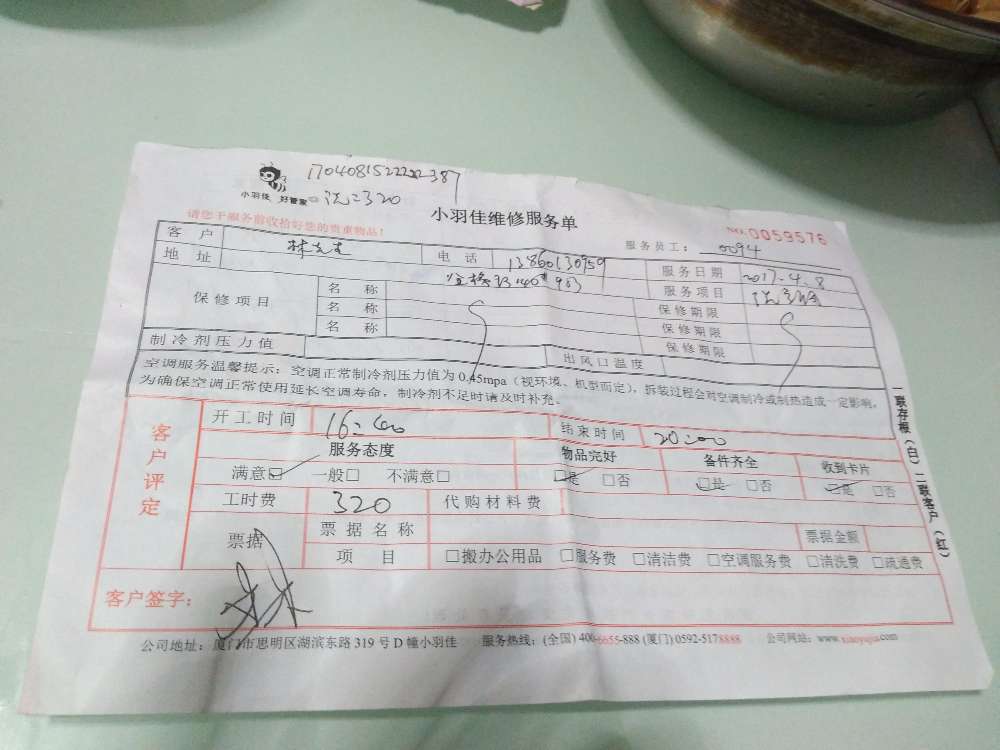 小羽佳 好管家
小羽佳维修服务单
请您于服务前收拾好您的贵重物品!
服务员工: 0094
NO:0059576
客户 林先生 电话 13860130959 服务日期 2017.4.8
地址 服务项目
保修项目 名称 保修期限
名称 保修期限
名称 保修期限
制冷剂压力值 出风口温度
空调服务温馨提示:空调正常制冷剂压力值为0.45mpa(视环境、机型而定),拆装过程会对空调制冷或制热造成一定影响,
为确保空调正常使用延长空调寿命,制冷剂不足时请及时补充。
客户评定
开工时间 16:00 结束时间 20:00
服务态度 物品完好 备件齐全 收到卡片
满意☑ 一般□ 不满意□ ☑是 □否 ☑是 □否 ☑是 □否
工时费 320 代购材料费
票据 票据名称 票据金额
项目 □搬办公用品 □服务费 □清洁费 □空调服务费 □清洗费 □疏通费
客户签字:
一联存根(白) 二联客户(红)
公司地址:厦门市思明区湖滨东路319号D幢小羽佳 服务热线:(全国)400-6655-888 (厦门)0592-5178888 公司网站:www.xiaoyujia.com